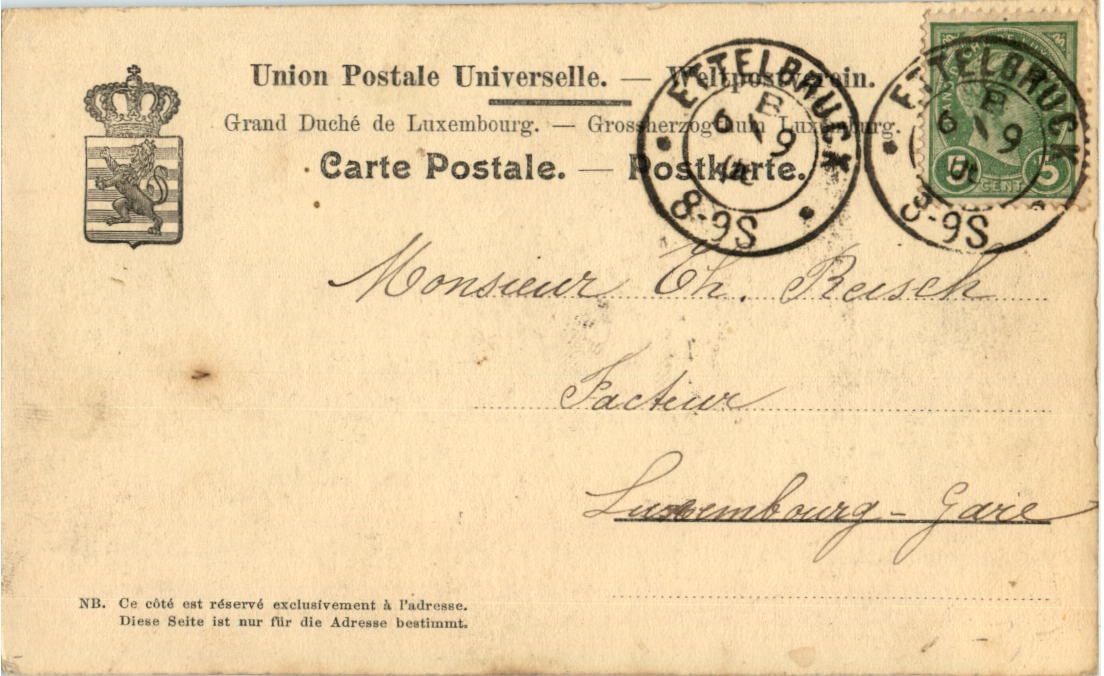 Union Postale Universelle. — Weltpostverein.
Grand Duché de Luxembourg. — Grossherzogthum Luxemburg.
Carte Postale. — Postkarte.
ETTELBRUCK
B
6 9
8-9S
ETTELBRUCK
B
6 9
8-9S
5 CENT 5
Monsieur Th. Reisch
Facteur
Luxembourg - Gare
NB. Ce côté est réservé exclusivement à l'adresse.
Diese Seite ist nur für die Adresse bestimmt.